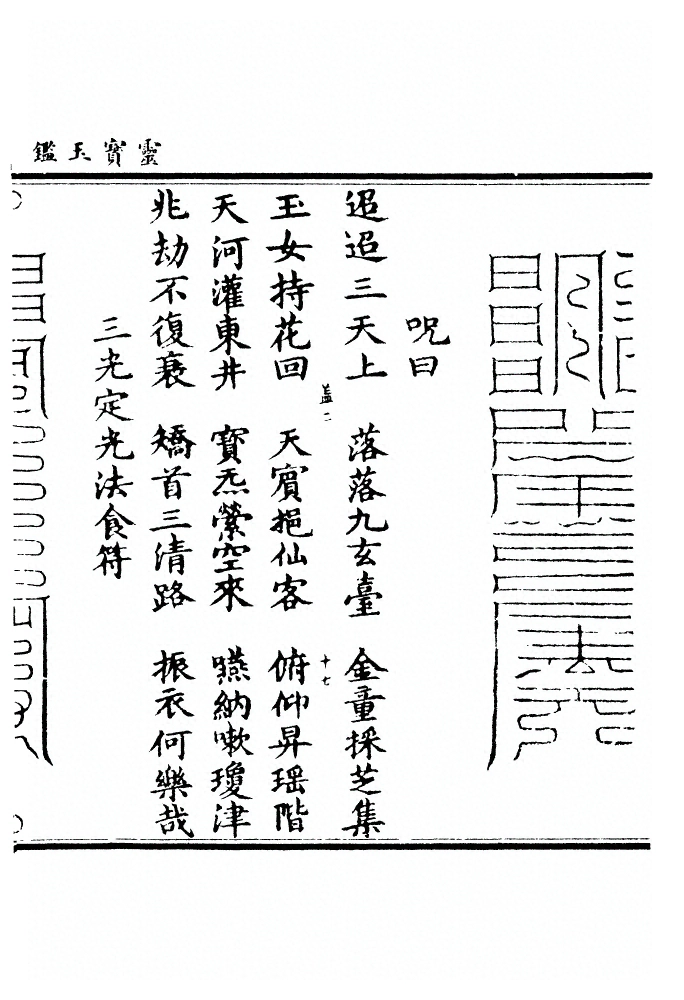 靈寶玉鑑
呪曰
迢迢三天上　落落九玄臺　金童採芝集
盖二　十七
玉女持花回　天賓挹仙客　俯仰昇瑶階
天河灌東井　寶炁縈空來　嚥納嗽瓊津
兆劫不復衰　矯首三清路　振衣何樂哉
三光定光法食符